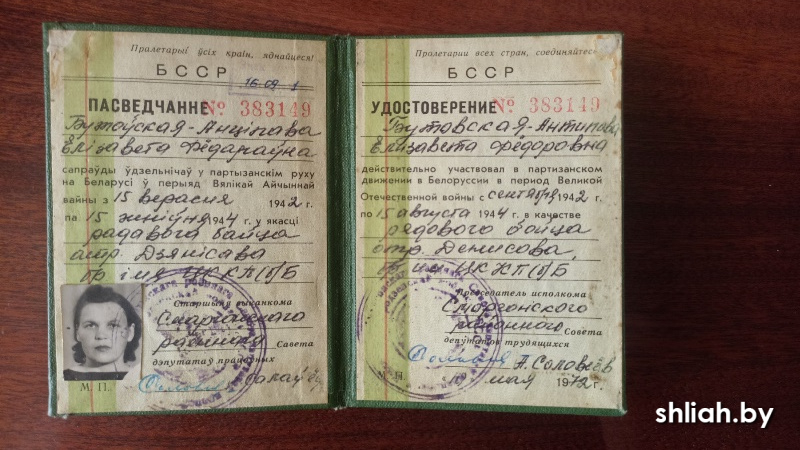 Пралетарыі ўсіх краін, яднайцеся!
БССР
16.09
ПАСВЕДЧАННЕ № 383149
Бутоўская-Анціпава
Елізавета Фёдараўна
сапраўды ўдзельнічаў у партызанскім руху
на Беларусі ў перыяд Вялікай Айчыннай
вайны з 15 верасня 1942 г.
па 15 жніўня 1944 г. у якасці
радавога байца
атр. Дзянісава
бр імя ЦККП(б)Б
Старшыня выканкома
Смаргонскага
раённага Савета
дэпутатаў працоўных
М. П.
Пролетарии всех стран, соединяйтесь
БССР
УДОСТОВЕРЕНИЕ № 383149
Бутовская-Антипова
Елизавета Фёдоровна
действительно участвовал в партизанском
движении в Белоруссии в период Великой
Отечественной войны с сентября 1942 г.
по 15 августа 1944 г. в качестве
рядового бойца
отр. Денисова,
бр им. ЦК КП(б)Б
Председатель исполкома
Сморгонского
районного Совета
депутатов трудящихся
А. Соловьёв
М. П. мая 1972 г.
shliah.by